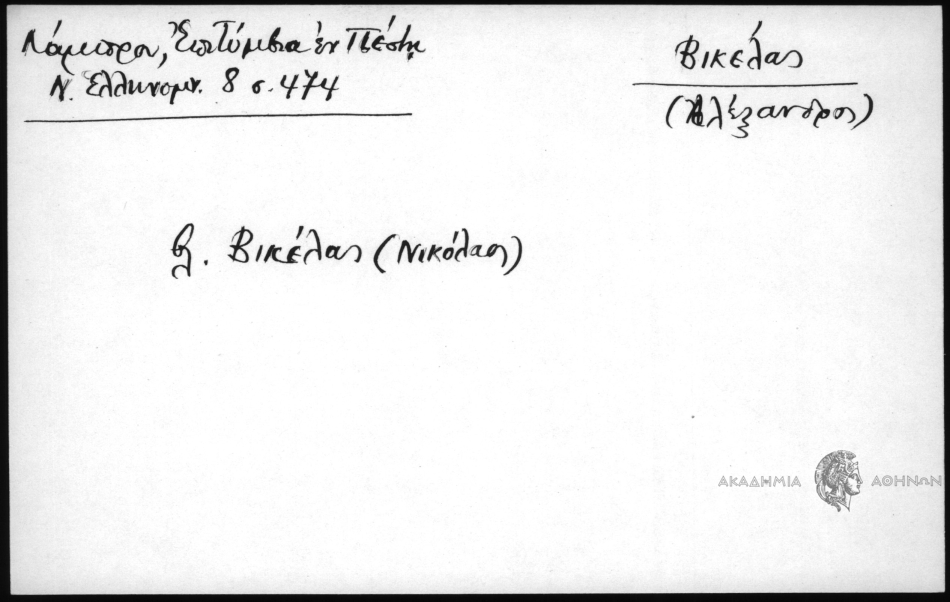 Λάμπρου, Ἐπιτύμβια ἐν Πέστῃ
Ν. Ἑλληνομν. 8 σ. 474
Βικέλας
(Ἀλέξανδρος)
βλ. Βικέλας (Νικόλαος)
ΑΚΑΔΗΜΙΑ ΑΘΗΝΩΝ